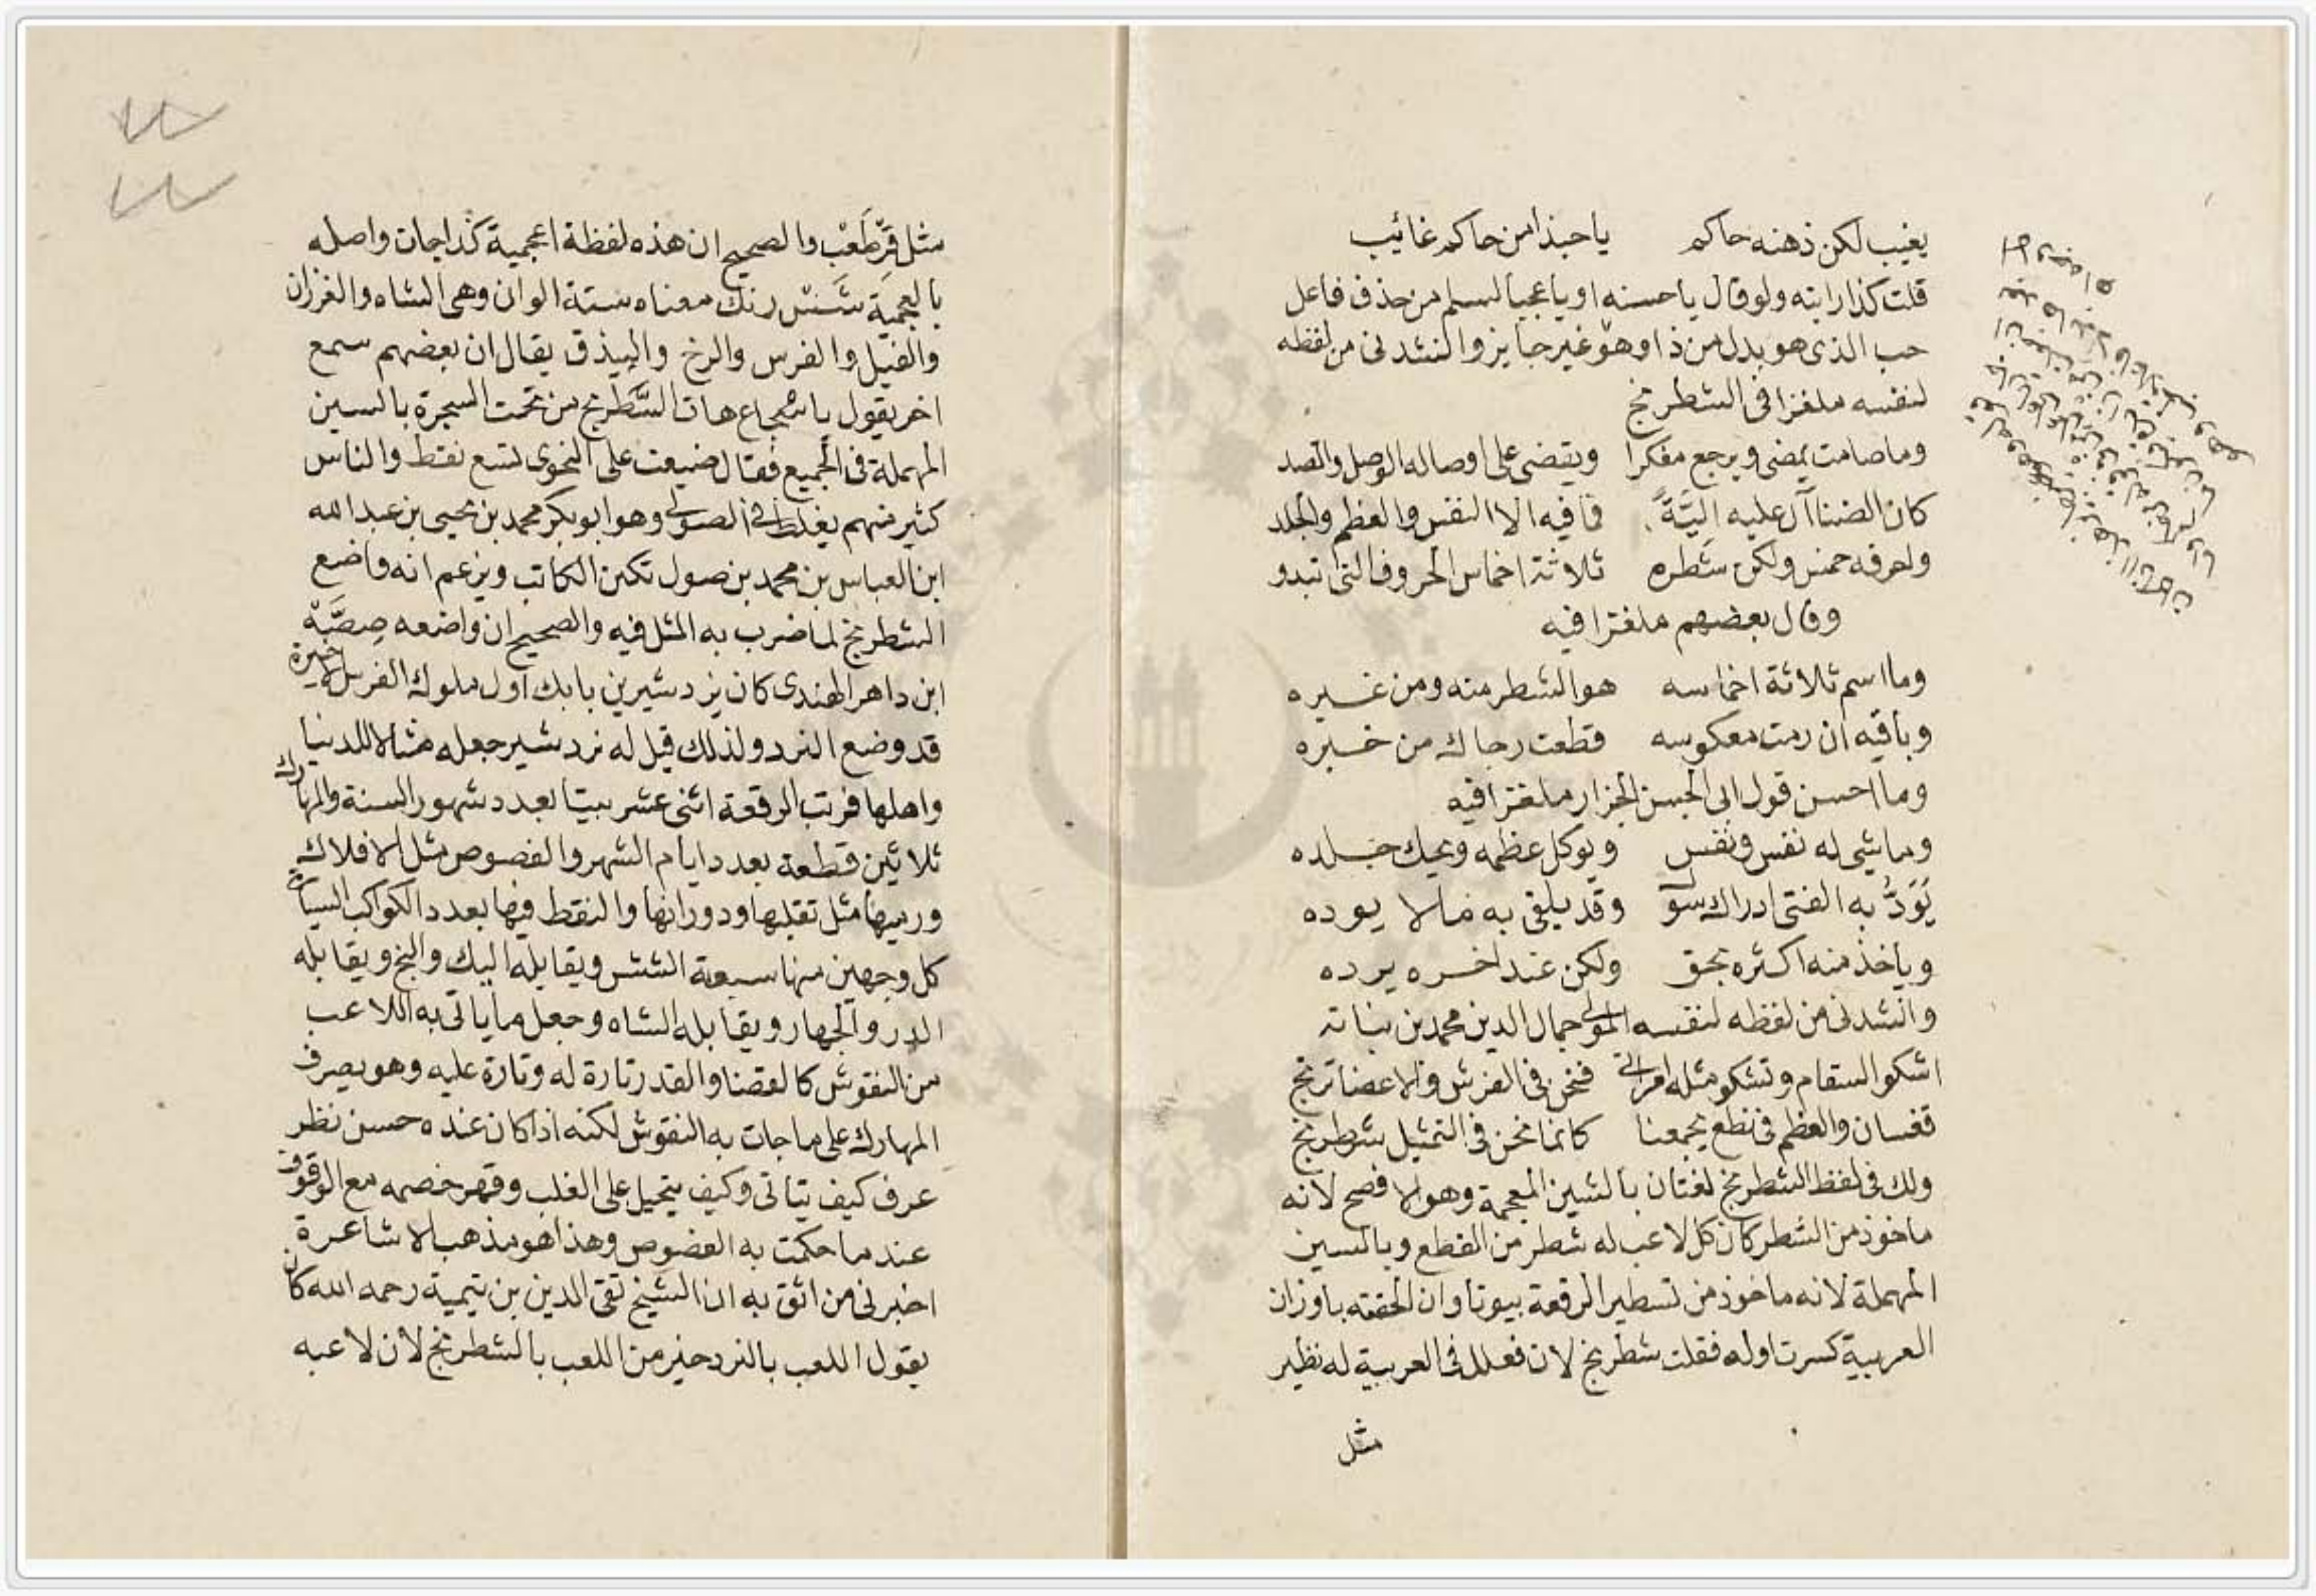 يغيب لكن ذهنه حاكم يا حبذا من حاكم غائب
قلت كذا رايته ولو قال يا حسنه او يا عجبا لسلم من حذف فاعل
حب الذى هو بدل من ذا وهو غير جايز وانشدنى من لفظه
لنفسه ملغزا فى الشطرنج
وما صامت يمضى ويرجع مفكرا ويقضى على اوصاله الوصل والصد
كان الضنا آل عليه اليّةً فما فيه الا النفس والعظم والجلد
واحرفه خمس ولكن شطره ثلاثة اخماس الحروف التى تبدو
وقال بعضهم ملغزا فيه
وما اسم ثلاثة اخماسه هو الشطر منه ومن غيره
وباقيه ان رمت معكوسه قطعت رجاك من خيره
وما احسن قول ابى الحسن الجزار ملغزا فيه
وما شى له نفس ونفس ويوكل عظمه ويحك جلده
يَوَدُّ به الفتى ادراك سو وقد يلقى به ما لا يوده
وياخذ منه اكثره بحق ولكن عند اخره يرده
وانشدنى من لفظه لنفسه المولى جمال الدين محمد بن نباتة
اشكو السقام وتشكو مثله امراتى فنحن فى الفرش والاعضا ترتج
نفسان والعظم فى نطع يجمعنا كانما نحن فى التمثيل شطرنج
ولك فى لفظ الشطرنج لغتان بالشين المعجمة وهو الافصح لانه
ماخوذ من الشطر كان كل لاعب له شطر من القطع وبالسين
المهملة لانه ماخوذ من تسطير الرقعة بيوتا وان الحقته باوزان
العربية كسرت اوله فقلت شطرنج لان فعلل فى العربية له نظير
مثل
مثل قِرْطَعْب والصحيح ان هذه لفظة اعجمية كذا جات واصله
بالعجمية شَشْ رنك معناه ستة الوان وهى الشاه والفرزان
والفيل والفرس والرخ والبيذق يقال ان بعضهم سمع
اخر يقول يا شجاع هات السَّطرنج من تحت السجرة بالسين
المهملة فى الجميع فقال ضيعت على النحوى تسع نقط والناس
كثير منهم يغلط فى الصولى وهو ابو بكر محمد بن يحيى بن عبد الله
ابن العباس بن محمد بن صول تكين الكاتب ويزعم انه واضع
الشطرنج لما ضرب به المثل فيه والصحيح ان واضعه صِصَّه
ابن داهر الهندى كان يزدشير بن بابك اول ملوك الفرس الاخيرة
قد وضع النرد ولذلك قيل له نردشير جعله مثالا للدنيا
واهلها فرتب الرقعة اثنى عشر بيتا بعدد شهور السنة والمهارك
ثلاثين قطعة بعدد ايام الشهر والفصوص مثل الافلاك
ورميها مثل تقلبها ودورانها والنقط فيها بعدد الكواكب السيارة
كل وجهين منها سبعة الشش ويقابله اليك والبنج ويقابله
الدو والجهار ويقابله الشاه وجعل ما ياتى به اللاعب
من النقوش كالقضا والقدر تارة له وتارة عليه وهو يصرف
المهارك على ما جات به النقوش لكنه اذا كان عنده حسن نظر
عرف كيف يتاتى وكيف يتحيل على الغلب وقهر خصمه مع الوقوف
عند ما حكمت به الفصوص وهذا هو مذهب الاشاعرة
اخبرنى من اثق به ان الشيخ تقى الدين بن تيمية رحمه الله كان
يقول اللعب بالنرد خير من اللعب بالشطرنج لان لاعبه